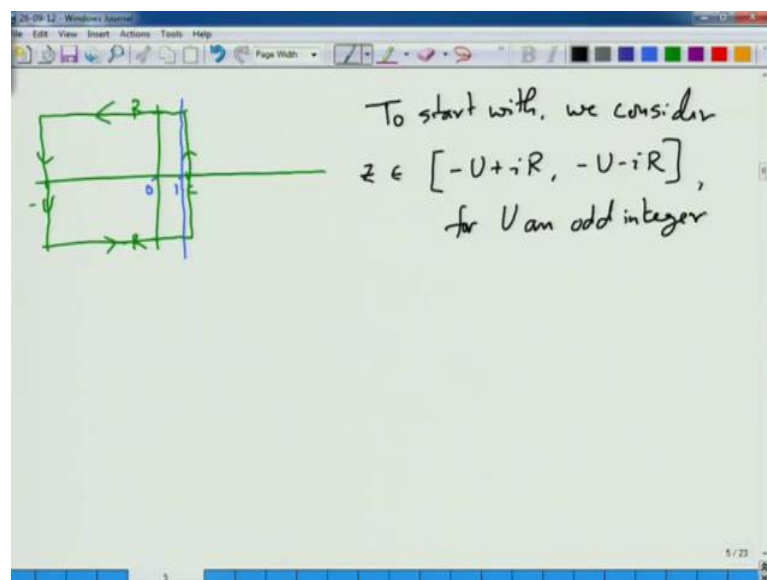 26-09-12 - Windows Journal
File Edit View Insert Actions Tools Help
Page Width
B I
To start with, we consider
z ∈ [-U+iR, -U-iR],
for U an odd integer
R
-U 0 1 c
R
5 / 23
5